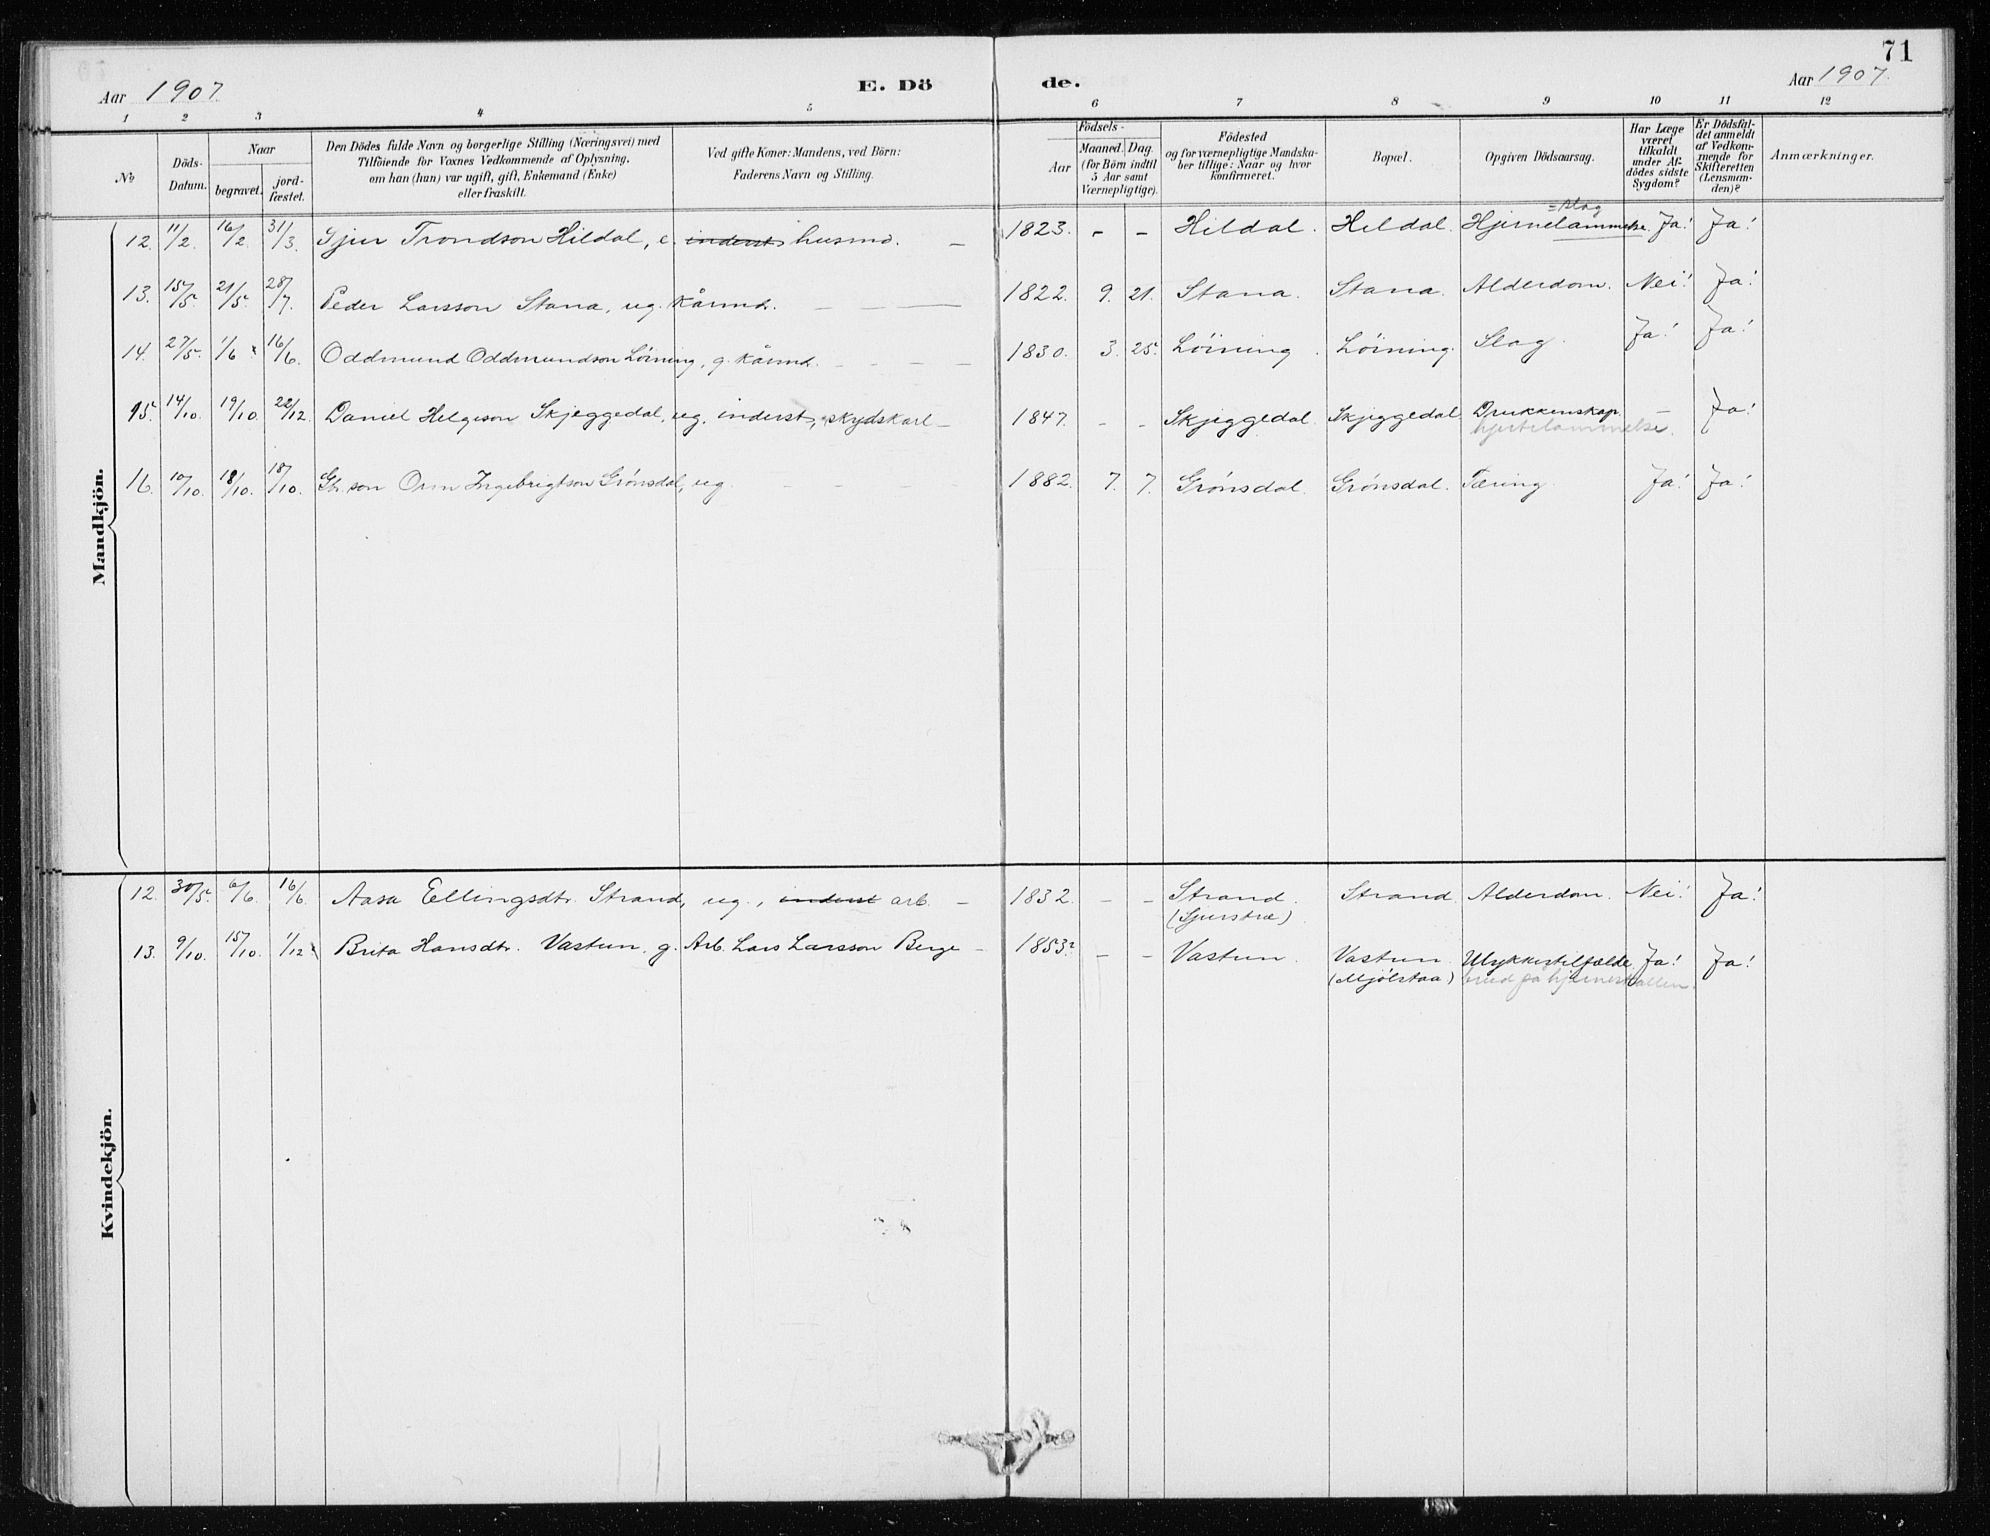 71
Aar 1907. E. Dö de. Aar 1907.
1 2 3 4 5 6 7 8 9 10 11 12
No
Döds-
Datum.
Naar
begravet.
jord-
fæstet.
Den Dödes fulde Navn og borgerlige Stilling (Næringsvei) med
Tilföiende for Voxnes Vedkommende af Oplysning,
om han (hun) var ugift, gift, Enkemand (Enke)
eller fraskilt.
Ved gifte Koner: Mandens, ved Börn:
Faderens Navn og Stilling.
Födsels-
Aar
Maaned. Dag.
(for Börn indtil
5 Aar samt
Værnepligtige).
Födested
og for værnepligtige Mandska-
ber tillige: Naar og hvor
konfirmeret.
Bopæl.
Opgiven Dödsaarsag.
Har Læge
været
tilkaldt
under Af-
dödes sidste
Sygdom?
Er Dödsfal-
det anmeldt
af Vedkom-
mende for
Skifteretten
(Lensman-
den)?
Anmærkninger.
Mandkjön.
= slag
12. 11/2. 16/2. 31/3. Sjur Trondson Hildal, e. inderst husmd. — 1823. - - Hildal. Hildal. Hjernelammelse. Ja! Ja!
13. 15/5. 21/5. 28/7. Peder Larsson Stana, ug. kårmd. — — — 1822. 9. 21. Stana. Stana. Alderdom. Nei! Ja!
14. 27/5. 1/6 16/6. Oddmund Oddmundson Löining, g. kårmd. — — — — 1830. 3. 25. Löining. Löining. Slag. Ja! Ja!
15. 14/10. 19/10. 22/12. Daniel Helgeson Skjeggedal, ug. inderst, skydskarl — 1847. - - Skjeggedal. Skjeggedal Drukkenskap. — Ja!
hjertelammelse.
16. 10/10. 18/10. 18/10. Gb.son Orm Ingebrigtson Grönsdal, ug. — — — 1882. 7. 7. Grönsdal. Grönsdal. Tæring. Ja! Ja!
Kvindekjön.
12. 30/5. 6/6. 16/6. Aasa Ellingsdtr. Strand, ug., inderst arb. — 1832. - - Strand. Strand. Alderdom. Nei! Ja!
(Sjurstræ)
13. 9/10. 15/10. 1/12. Brita Hansdtr. Vastun, g. Arb. Lars Larsson Berge — 1853? - - Vastun. Vastun. Ulykkestilfælde. Ja! Ja!
(Mjölstaa) brud på hjerneskallen.